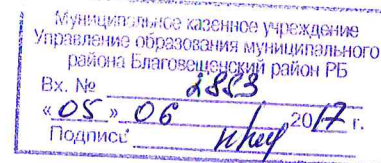 Муниципальное казенное учреждение
Управление образования муниципального
района Благовещенский район РБ
Вх. №
« 05 » 06 2017 г.
Подпись